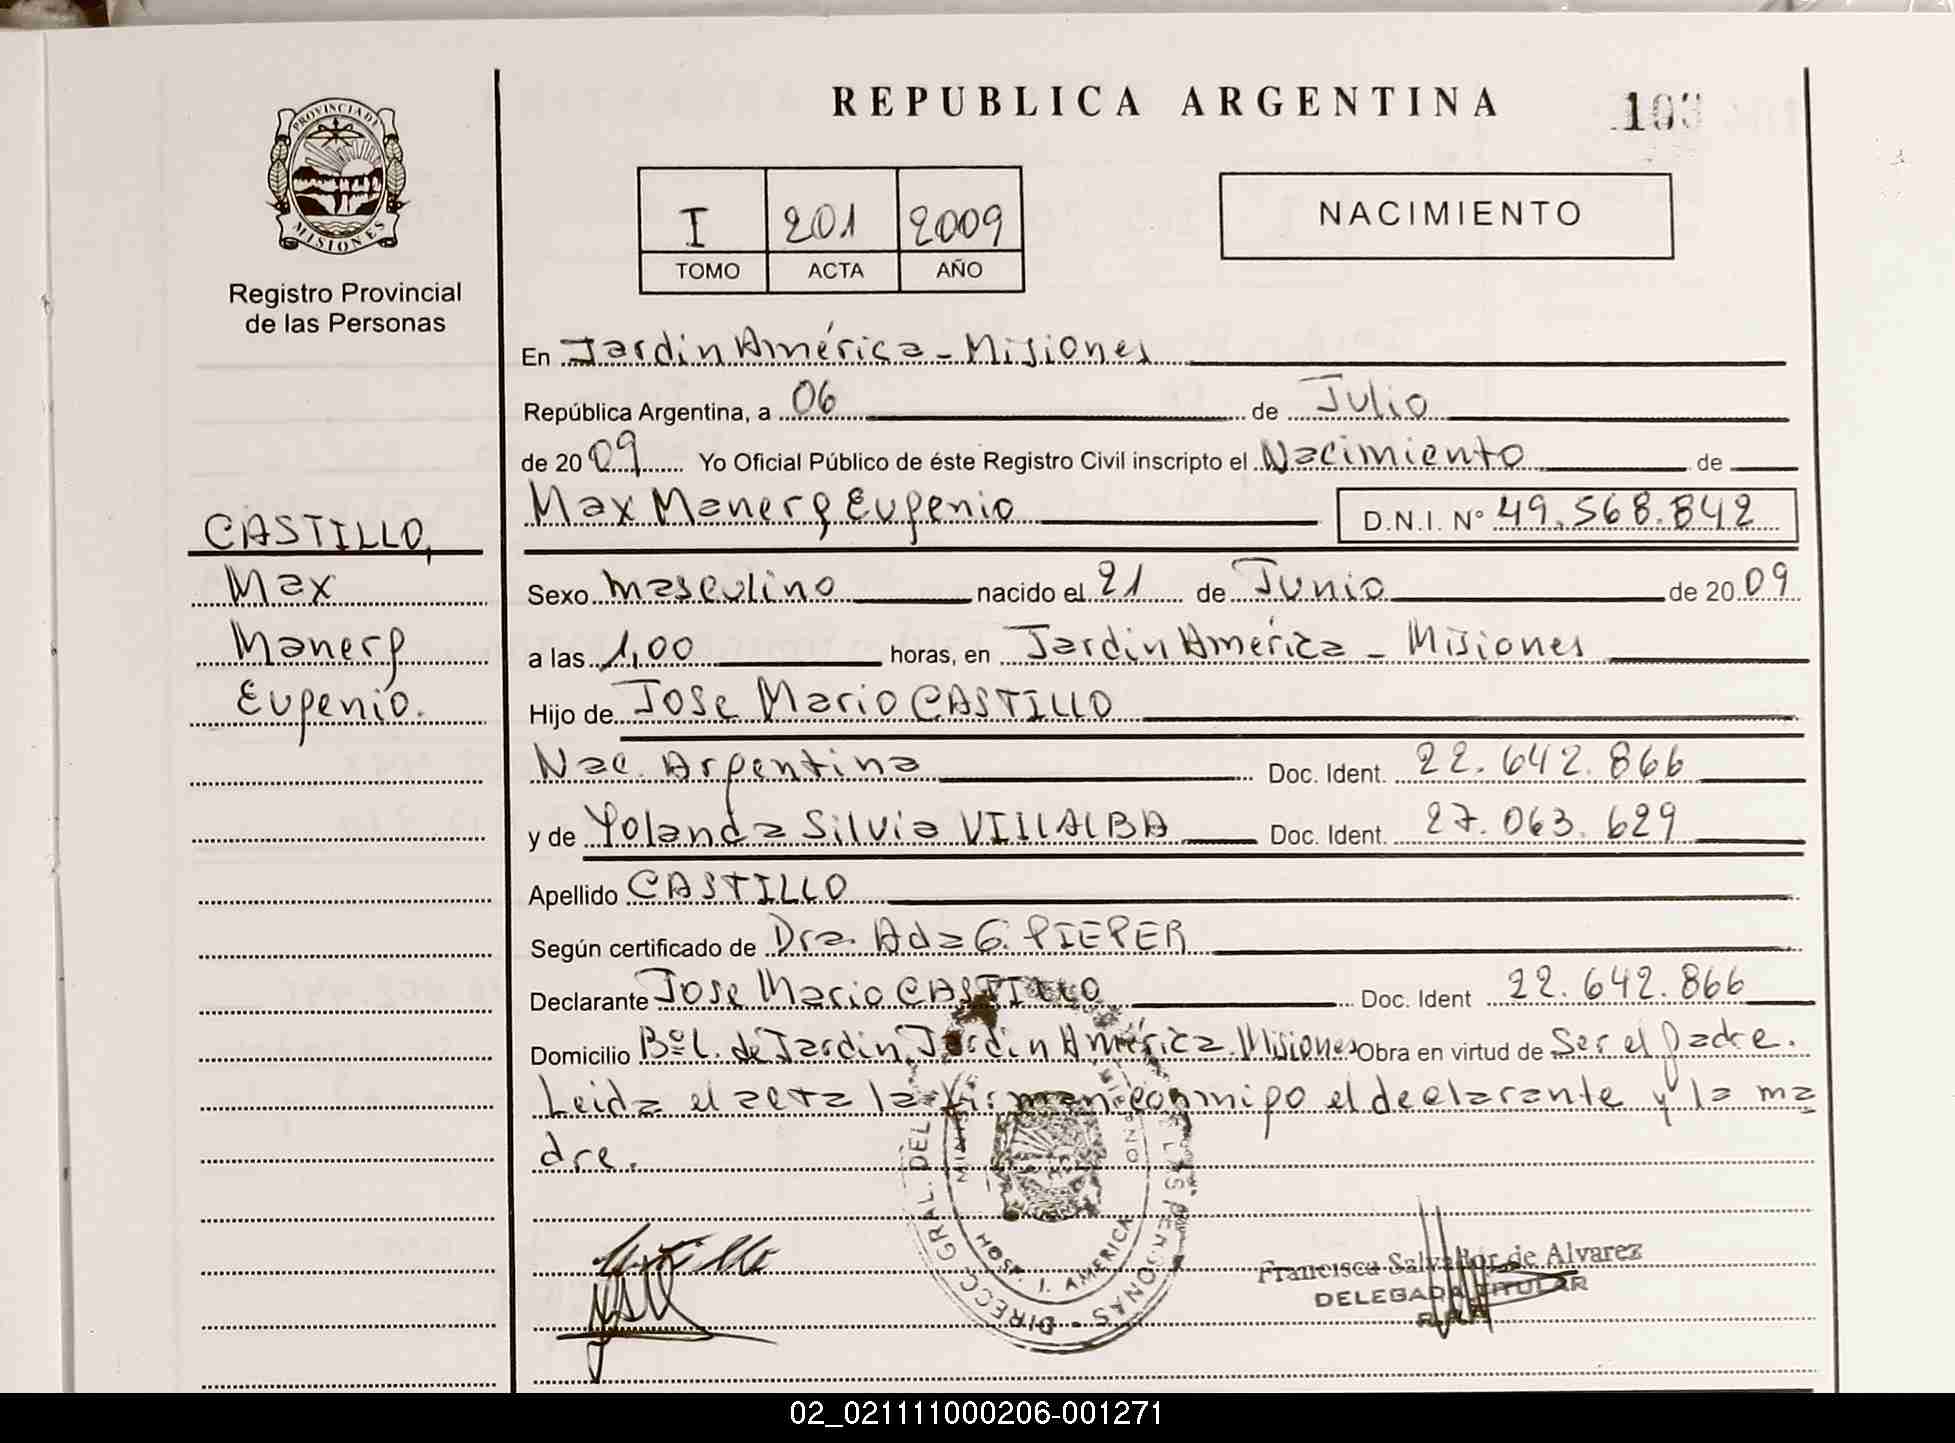 REPUBLICA ARGENTINA
103
PROVINCIA DE
MISIONES
Registro Provincial
de las Personas
I 201 2009
TOMO ACTA AÑO
NACIMIENTO
En Jardin América - Misiones
República Argentina, a 06 de Julio
de 20 09 Yo Oficial Público de éste Registro Civil inscripto el Nacimiento de
Max Manerg Eugenio D.N.I. Nº 49.568.842
CASTILLO,
Max
Manerg
Eugenio.
Sexo masculino nacido el 21 de Junio de 20 09
a las 1,00 horas, en Jardin América - Misiones
Hijo de Jose Mario CASTILLO
Nac. Argentina Doc. Ident. 22.642.866
y de Yolanda Silvia VILLALBA Doc. Ident. 27.063.629
Apellido CASTILLO
Según certificado de Dra. Ada G. PIEPER
Declarante Jose Mario CASTILLO Doc. Ident 22.642.866
Domicilio Bº L. de Jardin, Jardin América. Misiones Obra en virtud de Ser el padre.
Leida el acta la firman conmigo el declarante y la ma
dre.
DIRECC. GRAL. DEL LAS PERSONAS
HOSP. J. AMERICA
Francisca Salvador de Alvarez
DELEGADA TITULAR
02_021111000206-001271